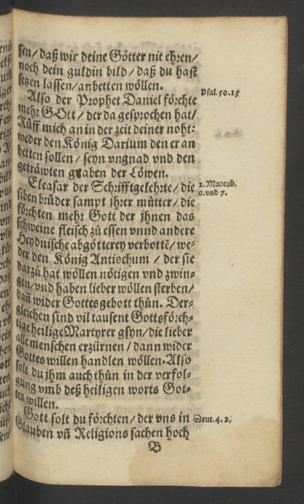 sen/ daß wir deine Götter nit ehren/
noch dein guldin bild/ daß du hast
setzen lassen/ anbetten wöllen.
Also der Prophet Daniel förchte
mehr GOtt/ der da gesprochen hat/
Rüff mich an in der zeit deiner noht:
Psal. 50.15
weder den König Darium den er an
betten sollen/ seyn vngnad vnd den
getröwten graben der Löwen.
Eleasar der Schrifftgelehrte/ die
2. Maccab.
siben brüder sampt jhrer mütter/ die
6. vnd 7.
förchten mehr Gott der jhnen das
schweine fleisch zů essen vnnd andere
Heydnische abgötterey verbotté/ we-
der den König Antiochum/ der sie
darzů hat wöllen nötigen vnd zwin-
gen/ vnd haben lieber wöllen sterben/
dañ wider Gottes gebott thůn. Der-
gleichen sind vil tausent Gottsförch-
tige heilige Martyrer gsyn/ die lieber
alle menschen erzürnen/ dann wider
Gottes willen handlen wöllen. Also
solt du jhm auch thůn in der verfol-
gung vmb deß heiligen worts Got-
tes willen.
Gott solt du förchten/ der vns in
Deut. 4. 2.
Glauben vñ Religions sachen hoch
B